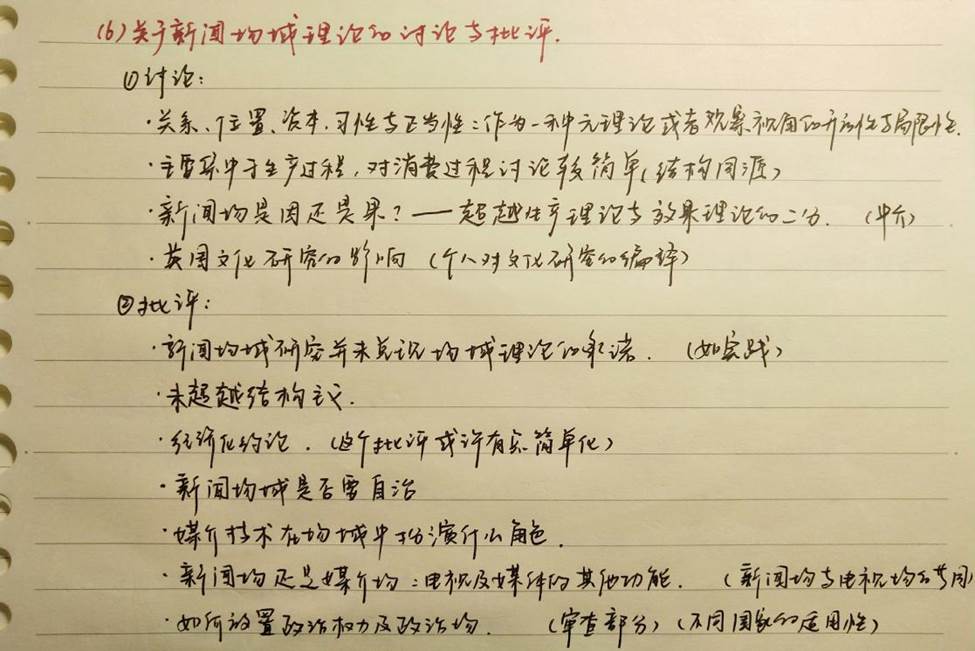 (6)关于新闻场域理论的讨论与批评.
①讨论:
·关系、位置、资本、习性与正当性:作为一种元理论或者观察视角的开放性与局限性.
·主要集中于生产过程,对消费过程讨论较简单(结构同源)
·新闻场是因还是果?——超越生产理论与效果理论的二分. (中介)
·英国文化研究的影响 (个人对文化研究的编译)
②批评:
·新闻场域研究并未兑现场域理论的承诺. (如实践)
·未超越结构主义.
·经济化约论. (这个批评或许有些简单化)
·新闻场域是否需自治
·媒介技术在场域中扮演什么角色.
·新闻场还是媒介场:电视及媒体的其他功能. (新闻场与电视场的共用)
·如何放置政治权力及政治场. (审查部分)(不同国家的适用性)